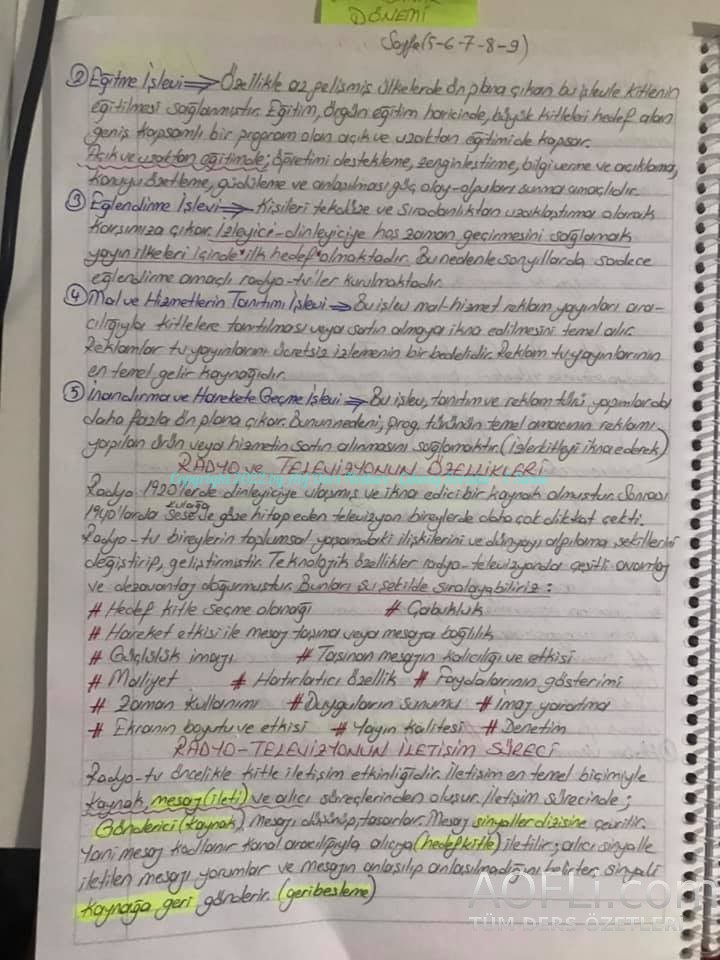 DÖNEMİ
Sayfa(5-6-7-8-9)
② Eğitme İşlevi ⇒ Özellikle az gelişmiş ülkelerde ön plana çıkan bu işlevle kitlenin
eğitilmesi sağlanmıştır. Eğitim, örgün eğitim haricinde, büyük kitleleri hedef alan
geniş kapsamlı bir program olan açık ve uzaktan eğitimi de kapsar.
Açık ve uzaktan eğitimde; öğretimi destekleme, zenginleştirme, bilgi verme ve açıklama,
konuyu özetleme, güdüleme ve anlaşılması güç olay-olguları sunma amaçlıdır.
③ Eğlendirme İşlevi ⇒ Kişileri tekdüze ve sıradanlıktan uzaklaştırma olarak
karşımıza çıkar. İzleyici-dinleyiciye hoş zaman geçirmesini sağlamak
yayın ilkeleri içinde "ilk hedef" olmaktadır. Bu nedenle son yıllarda sadece
eğlendirme amaçlı radyo-tv'ler kurulmaktadır.
④ Mal ve Hizmetlerin Tanıtımı İşlevi ⇒ Bu işlev mal-hizmet reklam yayınları ara-
cılığıyla kitlelere tanıtılması veya satın almaya ikna edilmesini temel alır.
Reklamlar tv yayınlarını ücretsiz izlemenin bir bedelidir. Reklam tv yayınlarının
en temel gelir kaynağıdır.
⑤ İnandırma ve Harekete Geçme İşlevi ⇒ Bu işlev, tanıtım ve reklam türü yapımlarda
daha fazla ön plana çıkar. Bunun nedeni, prog. türünün temel amacının reklamı
yapılan ürün veya hizmetin satın alınmasını sağlamaktır. (izlerkitleyi ikna ederek)
RADYO ve TELEVİZYONUN ÖZELLİKLERİ
Radyo 1920'lerde dinleyiciye ulaşmış ve ikna edici bir kaynak olmuştur. Sonrası
1940'larda sese kulağa ve göze hitap eden televizyon bireylerde daha çok dikkat çekti.
Radyo-tv bireylerin toplumsal yaşamdaki ilişkilerini ve dünyayı algılama şekillerini
değiştirip, geliştirmiştir. Teknolojik özellikler radyo-televizyonda çeşitli avantaj
ve dezavantaj doğurmuştur. Bunları şu şekilde sıralayabiliriz:
# Hedef kitle seçme olanağı # Çabukluk
# Hareket etkisi ile mesaj taşıma veya mesaja bağlılık
# Güçlülük imajı # Taşınan mesajın kalıcılığı ve etkisi
# Maliyet # Hatırlatıcı özellik # Faydalarının gösterimi
# Zaman kullanımı # Duyguların sunumu # İmaj yaratma
# Ekranın boyutu ve etkisi # Yayın kalitesi # Denetim
RADYO-TELEVİZYONUN İLETİŞİM SÜRECİ
Radyo-tv öncelikle kitle iletişim etkinliğidir. İletişim en temel biçimiyle
kaynak, mesaj (ileti) ve alıcı süreçlerinden oluşur. İletişim sürecinde;
Gönderici (kaynak), mesajı düşünüp, tasarlar. Mesaj sinyaller dizisine çevrilir.
Yani mesaj kodlanır kanal aracılığıyla alıcıya (hedef kitle) iletilir; alıcı sinyalle
iletilen mesajı yorumlar ve mesajın anlaşılıp anlaşılmadığını belirten sinyali
kaynağa geri gönderir. (geribesleme)
AOFLi.com
TÜM DERS ÖZETLERİ